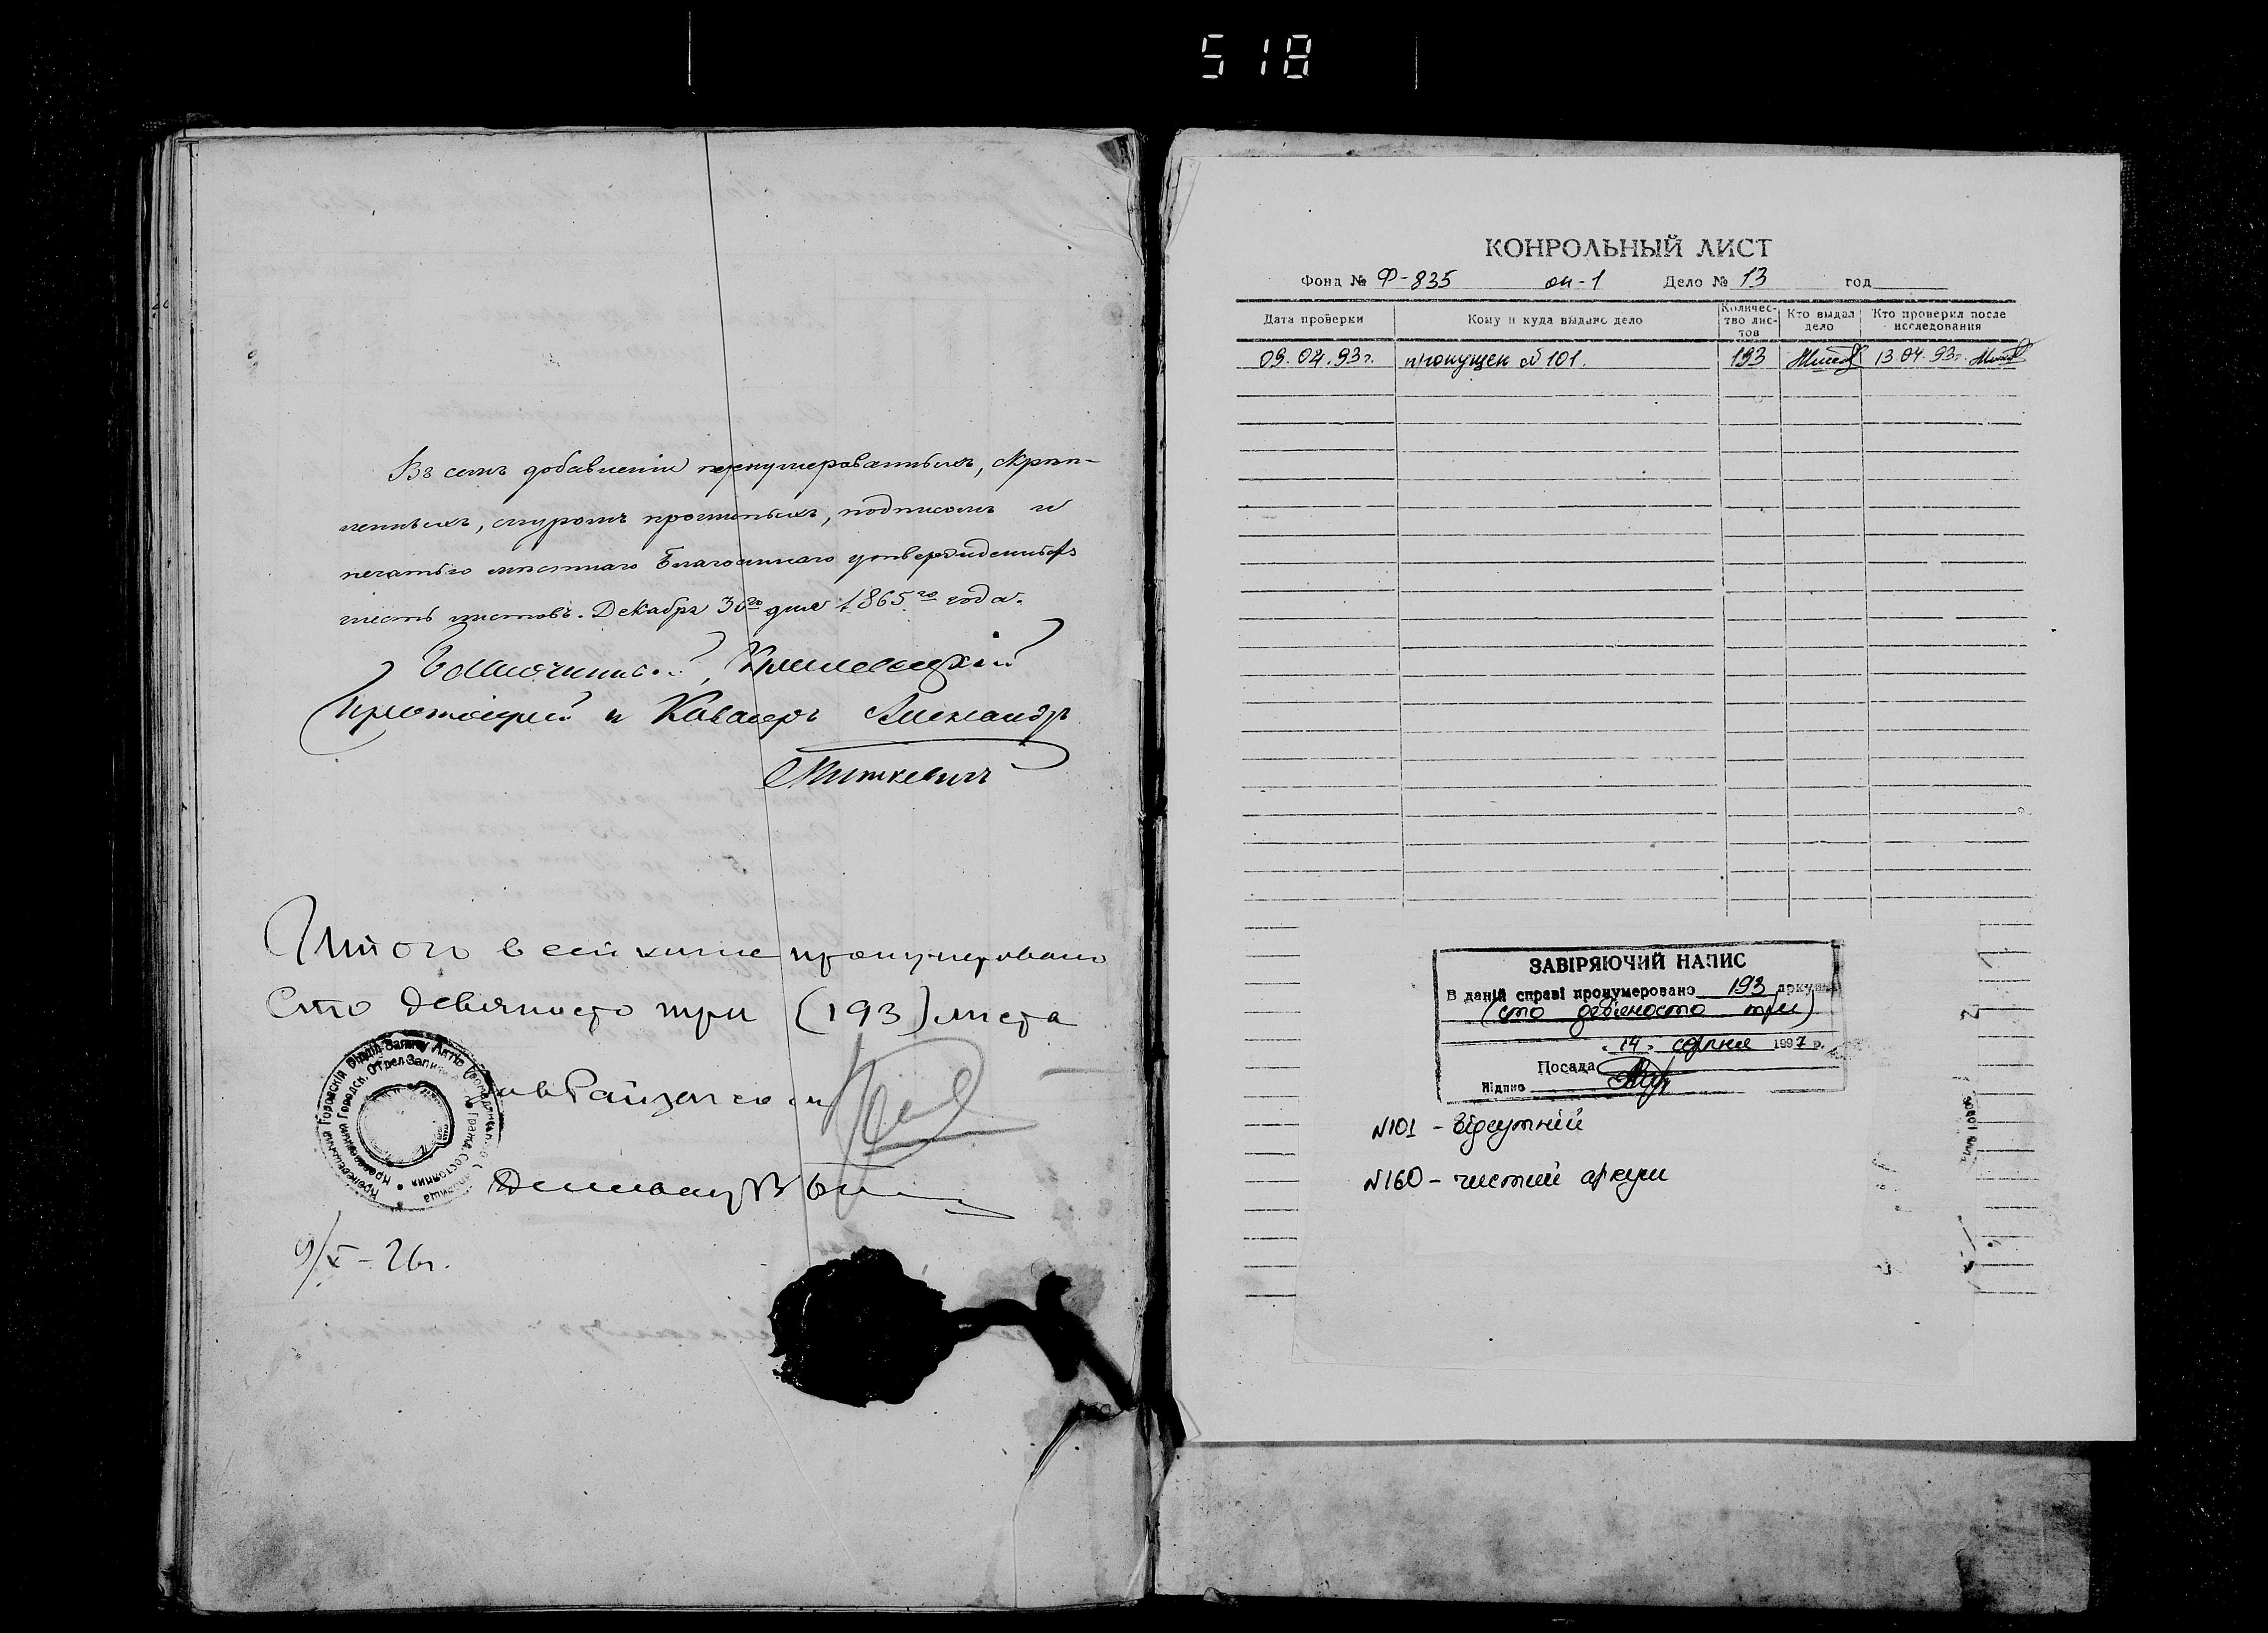 518
Въ семъ добавленіи перенумерованныхъ, скреп-
ленныхъ, шнуромъ прошитыхъ, подписомъ и
печатью местнаго Благочиннаго утвержденныхъ
шесть листовъ. Декабря 30го дня 1865го года.
Благочинный,
Протоіерей и Кавалеръ Александръ
Миткевичъ
Итого в сей книге пронумеровано
Сто девяносто три (193) листа
Делопроизв
9/X - 26г.
КОНРОЛЬНЫЙ ЛИСТ
Фонд № Ф-835 оп-1 Дело № 13 год
Дата проверки Кому и куда выдано дело Количес-тво лис-тов Кто выдал дело Кто проверил после исследования
09.04.93г. пропущен №101. 193 13.04.93г.
ЗАВІРЯЮЧИЙ НАПИС
В даній справі пронумеровано 193 аркуш
(сто девяносто три)
"14" серпня 1997 р.
Посада
Підпис
№101 - відсутній
№160 - чистий аркуш